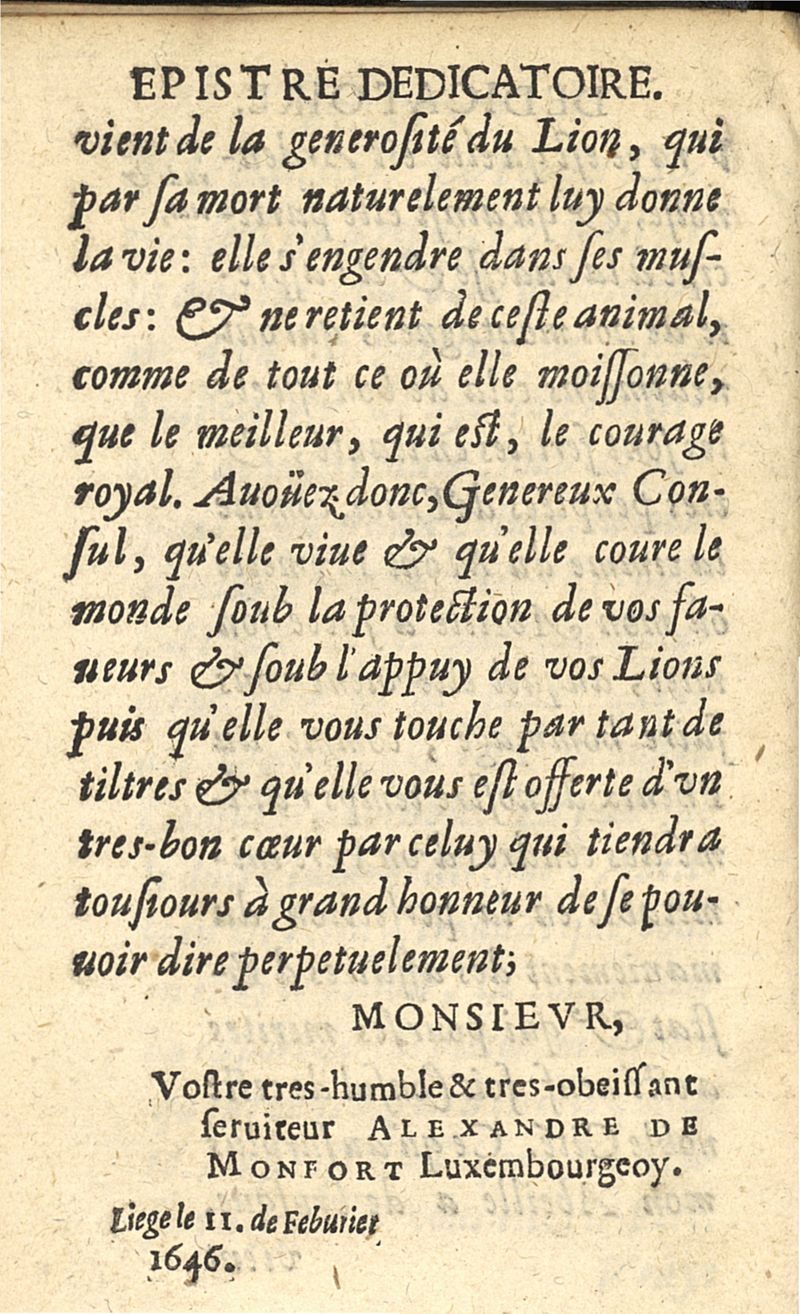 EPISTRE DEDICATOIRE.
vient de la generoſité du Lion, qui
par ſa mort naturelement luy donne
la vie: elle s'engendre dans ſes muſ-
cles: & ne retient de ceſte animal,
comme de tout ce où elle moiſſonne,
que le meilleur, qui eſt, le courage
royal. Auoüez donc, Genereux Con-
ſul, qu'elle viue & qu'elle coure le
monde ſoub la protection de vos fa-
ueurs & ſoub l'appuy de vos Lions
puis qu'elle vous touche par tant de
tiltres & qu'elle vous eſt offerte d'vn
tres-bon cœur par celuy qui tiendra
touſiours à grand honneur de ſe pou-
uoir dire perpetuelement;
MONSIEVR,
Voſtre tres-humble & tres-obeiſſant
ſeruiteur ALEXANDRE DE
MONFORT Luxembourgeoy.
Liege le 11. de Feburier
1646.